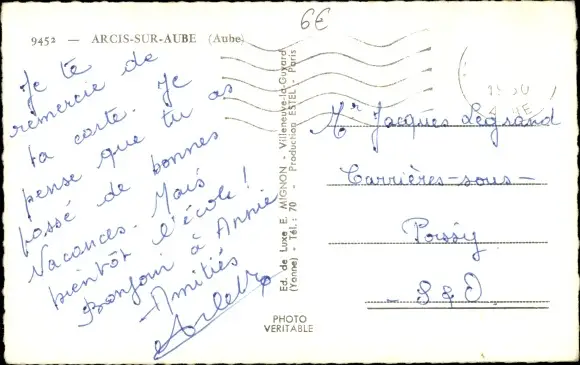 6€
9452 — ARCIS-SUR-AUBE (Aube)
Je te
remercie de
ta carte. Je
pense que tu as
passé de bonnes
Vacances. Mais
bientôt l'école!
Bonjour à Annie
Amitiés
Ed. de Luxe E. MIGNON - Villeneuve-la-Guyard
(Yonne) - Tél.: 70 - Production ESTEL - Paris
PHOTO
VERITABLE
Mr Jacques Legrand
Carrières-sous-
Poissy
S & O.